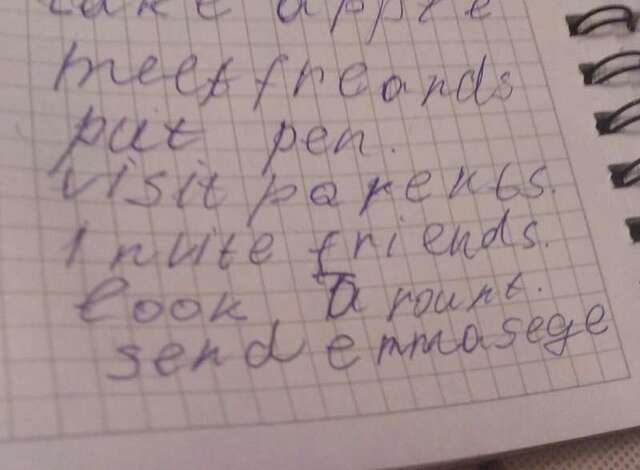 take apple
meet freands
put pen.
visit parents.
invite friends.
look arount.
send emmasege